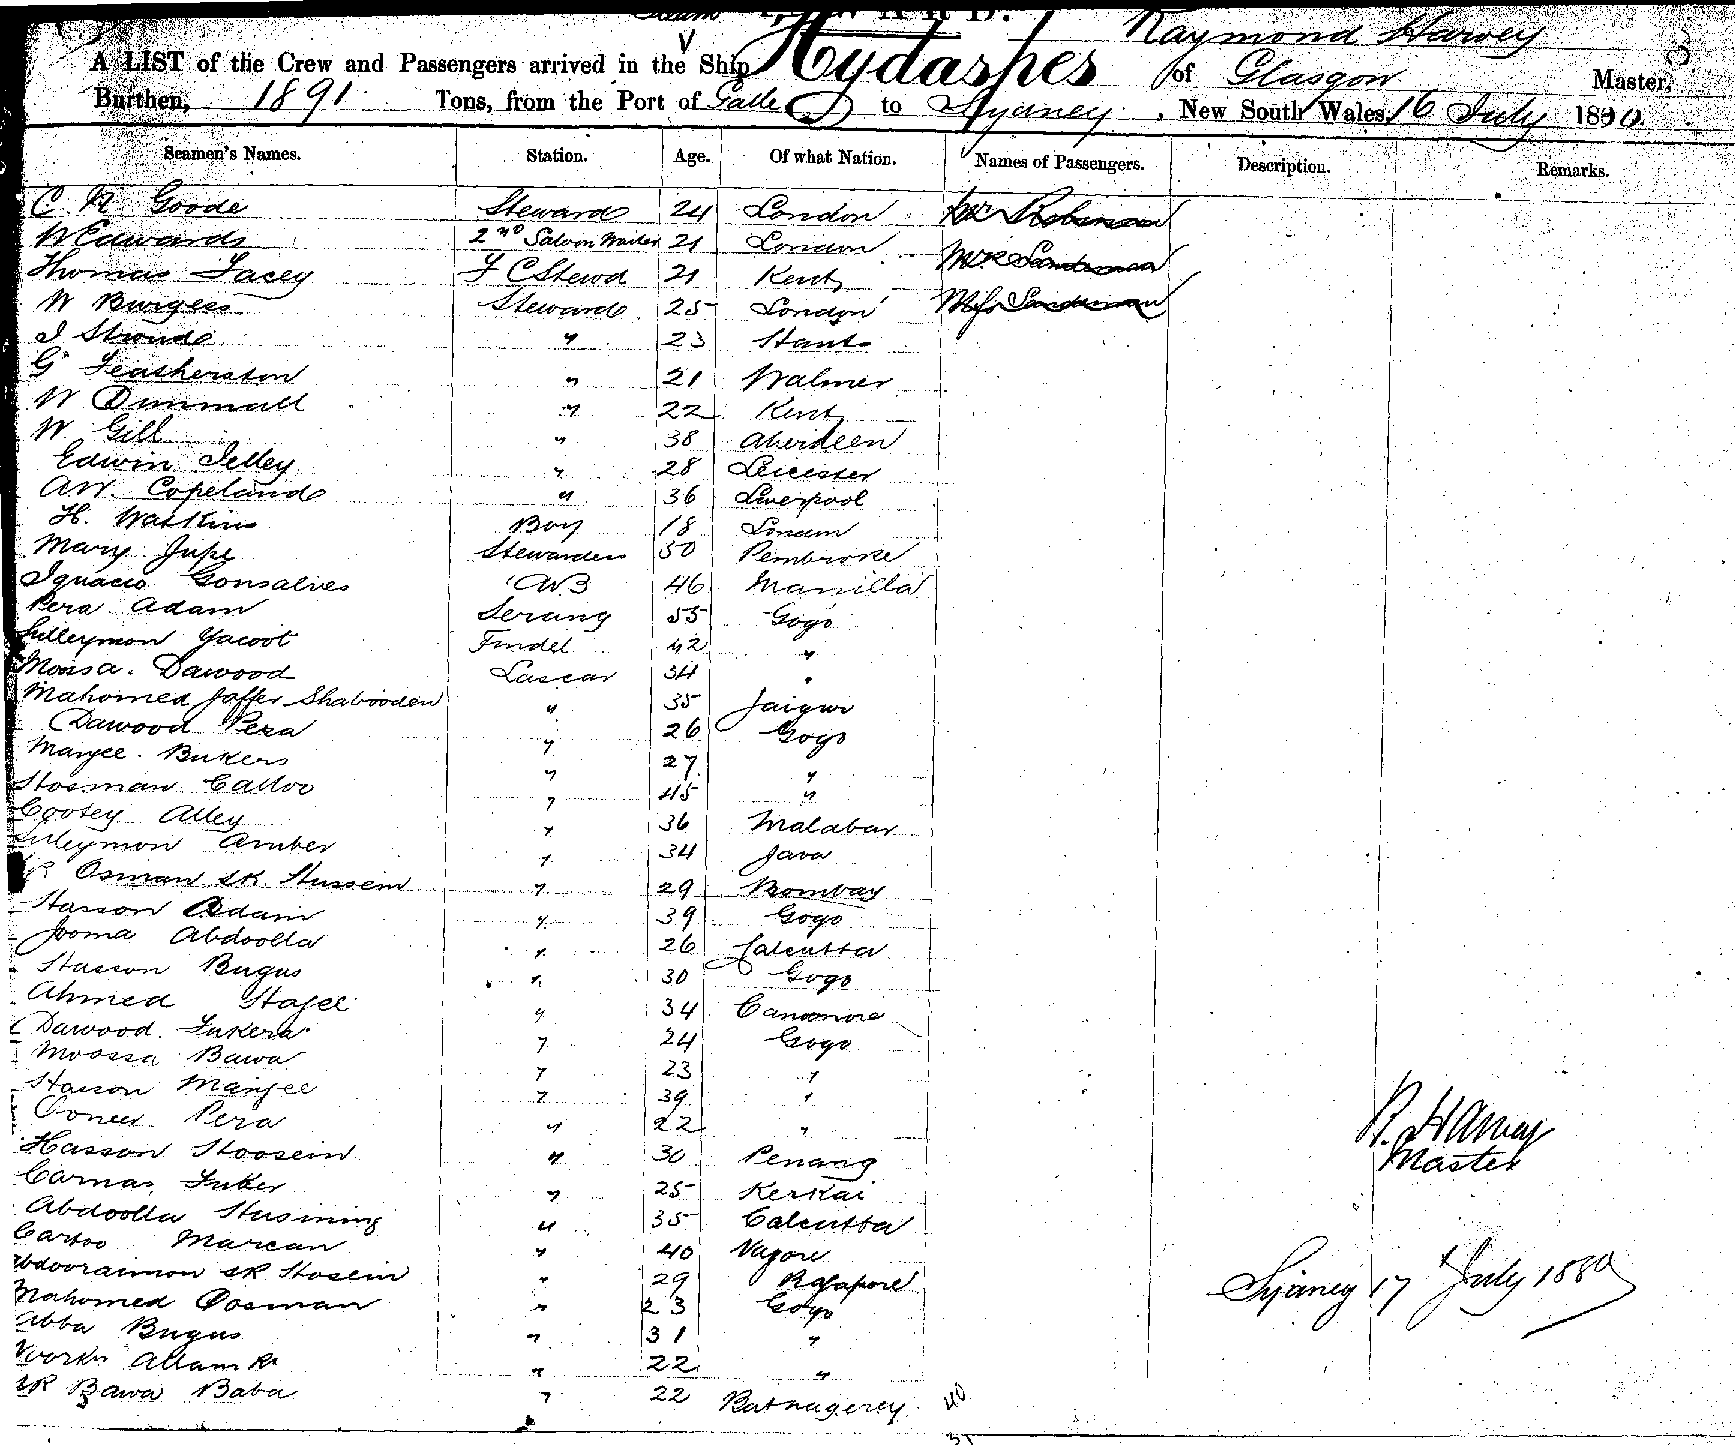 Steam INWARD.
Raymond Harvey
A LIST of the Crew and Passengers arrived in the Ship Hydaspes of Glasgow Master,
Burthen, 1891 Tons, from the Port of Galle to Sydney, New South Wales, 16 July 1880
Seamen's Names. Station. Age. Of what Nation. Names of Passengers. Description. Remarks.
C N Goode Steward 24 London Mr Robinson
W Edwards 2nd Saloon Waiter 21 London Mr Sandeman
Thomas Lacey F C Stewd 21 Kent
W Burgess Steward 25 London Mrs Sandeman
J Stroude " 23 Hants
G Featherston " 21 Walmer
W Dunmall " 22 Kent
W Gill " 38 Aberdeen
Edwin Jelley " 28 Leicester
A W Copeland " 36 Liverpool
H. Watkins Boy 18 London
Mary Jupe Stewardess 50 Pembroke
Ignacio Gonsalves AB 46 Manilla
Pera Adam Serang 55 Gogo
Sulleymon Yacoot Tindel 42 "
Moosa Dawood Lascar 34 "
Mahomed Jaffer Shabooden " 35 Jaigur
Dawood Pera " 26 Gogo
Manjee Bukers " 27 "
Hosman Calloo " 45 "
Cootey Alley " 36 Malabar
Sulleymon Amber " 34 Java
Osman SK Hussein " 29 Bombay
Hasson Adam " 39 Gogo
Jooma Abdoolla " 26 Calcutta
Hasson Bugus " 30 Gogo
Ahmed Hajee " 34 Cannanore
Dawood Fukera " 24 Gogo
Moossa Bawa " 23 "
Hasson Manjee " 39 "
Pera " 22 "
Hasson Hoosein " 30 Penang
Fuker " 25
Abdoolla " 35 Calcutta
Marcan " 40
SK Hosein " 29
Mahomed Oosman " 23 Gogo
Abba Bugus " 31 "
" 22 "
SK Bawa Baba " 22 Ratnagerey
40
R. Harvey
Master
Sydney 17 July 1880